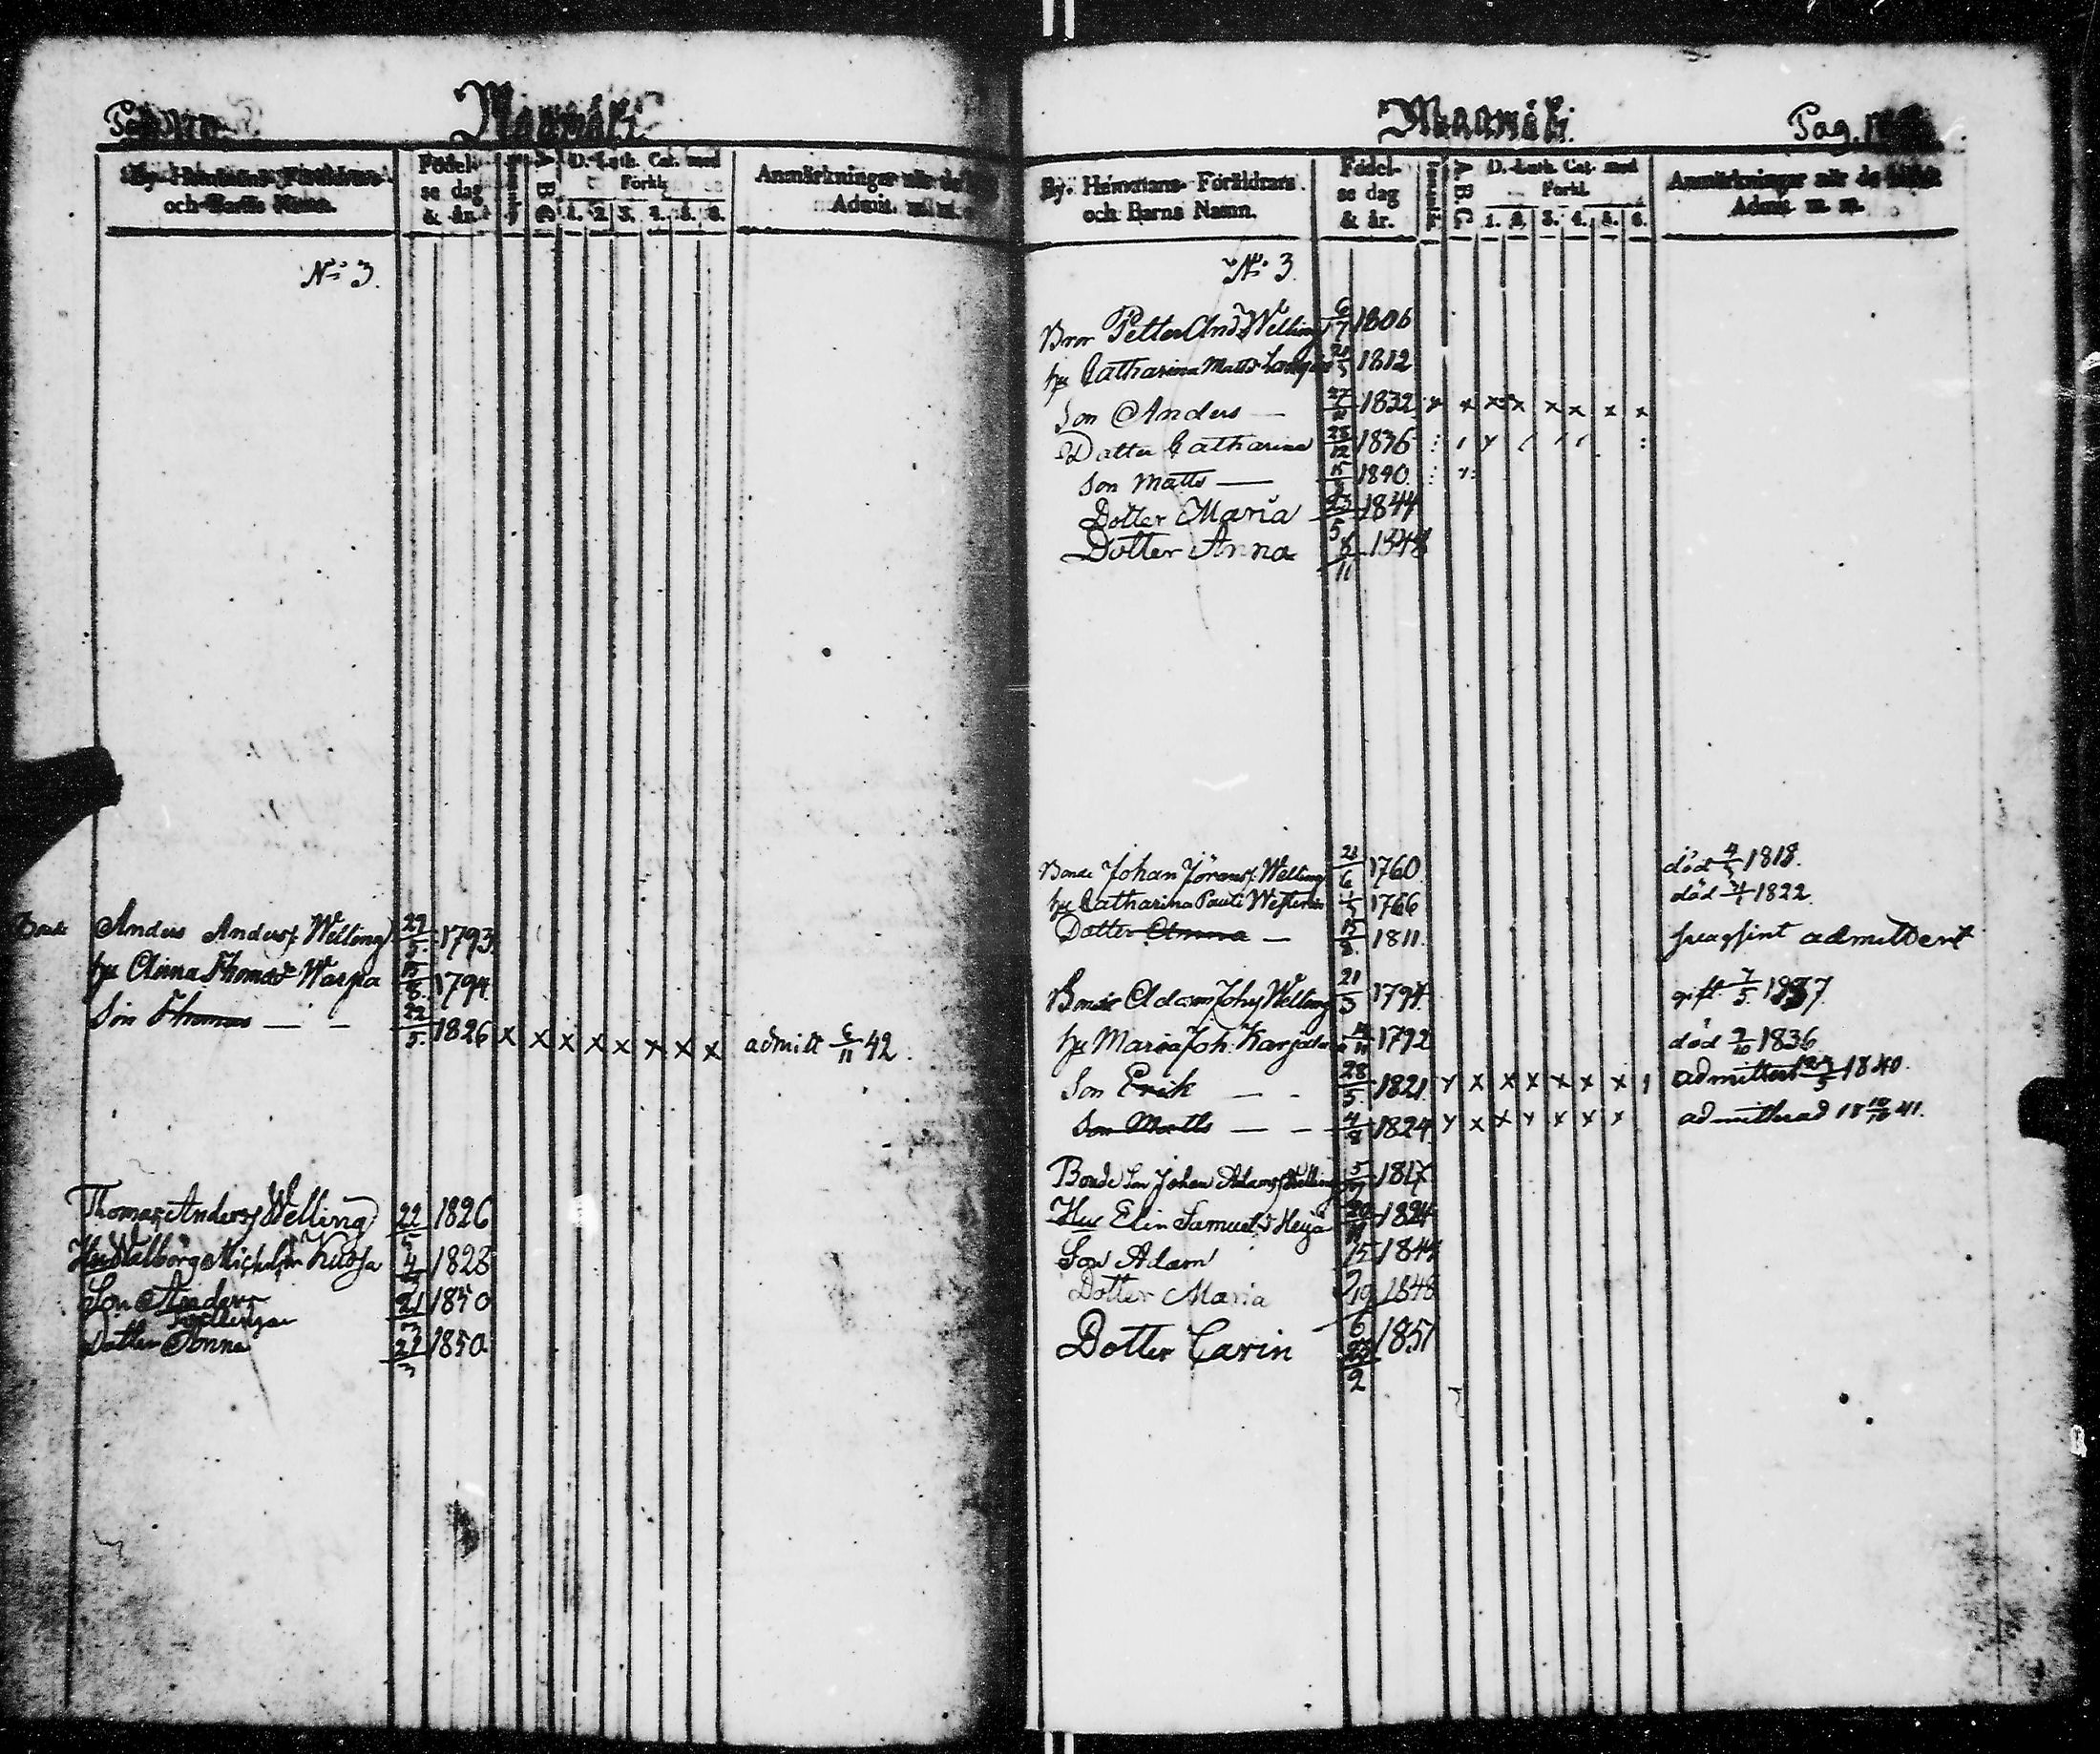 Maamäki
och Barns Namn.
Födel-
se dag
& år.
A B C
D. Luth. Cat. med
Förkl.
1. 2. 3. 4. 5. 6.
Anmärkningar
Admit.
No 3.
Bonde Anders Andersf Welling 1793
hu Anna Thomæd Warpa 1794
Son Thomas — — 22/5 1826 x x x x x x x x admitt 6/11 42.
Thomas Andersf Welling 22/5 1826
Hu Walborg Michelsdr 4 1828
Son Anders 21 1850
Dotter Anna 27/3 1850
Maamäki. Pag.
By. Hemmans- Föräldrars
och Barns Namn.
Födel-
se dag
& år.
A. B. C.
D. Luth. Cat. med
Förkl.
1. 2. 3. 4. 5. 6.
Anmärkningar när de
Admit. m. m.
No 3.
Bror Petter And. Welling 6/7 1806
hu Catharina Matts 1812
Son Anders — 27 1832 x x x x x x x x
Datter Catharina 1836
Son Matts — 15 1840
Dotter Maria 23/5 1844
Dotter Anna 8/11 1848
Bonde Johan Jöransf Welling 21/6 1760 död 4/5 1818.
hu Catharina Pauli 1766 död 1822.
Datter Anna — 15/2 1811. admitterd
Bonde Adam Johsf Welling 21/3 1794. gift 7/5 1837
hu Maria Joh. 1792 död 1836
Son Erik — - 28/5 1821 x x x x x x x admitterd 1840.
Son Matts — - 4/8 1824 x x x x x x x admitterad 18 41.
Bonde Son Johan Adamsf Welling 5 1817
Hu Elin Samuels Heijä 20 1824
Son Adam 15 1844
Dotter Maria 19/6 1848
Dotter Carin 23/2 1851